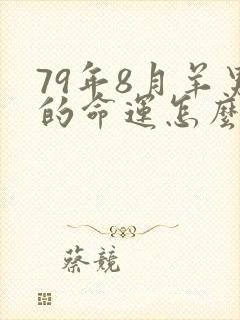 79年8月羊男
的命運怎麼
蔡競